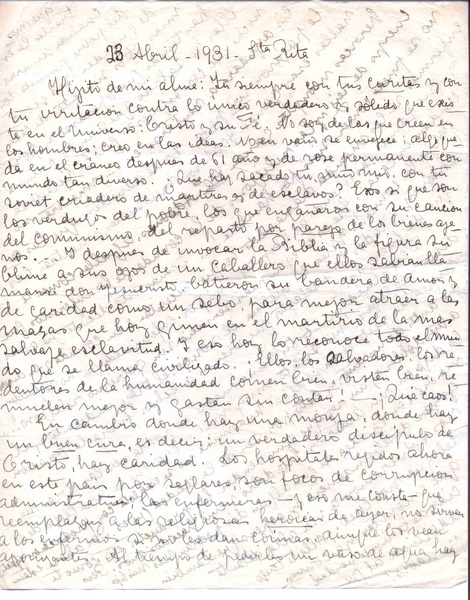 23 Abril - 1931 - Sta Rita
Hijito de mi alma: Tu siempre con tus curitas y con
tu irritacion contra lo unico verdadero y sólido que exis
te en el Universo: Cristo y su Fé. No soy de las que creen en
los hombres; creo en las ideas. No en vano se envejece; algo que
da en el craneo despues de 61 año y de roze permanente con
mundo tan diverso. Que hay sacado tu, niño mio, con tu
soviet criadero de martires y de esclavos? Esos si que son
los verdugos del pobre, los que engañaron con su cancion
del comunismo, del reparto por parejo de los bienes aje
nos. Y despues de invocar la Biblia y la figura su
blime a sus ojos de un caballero que ellos sabran lla
marse don Jesucristo, batieron su bandera de Amor y
de caridad como un sebo, para mejor atraer a las
masas que hoy gimen en el martirio de la mas
salvaje esclavitud. Y eso hoy lo reconoce todo el mun
do que se llama civilizado. Ellos, los salvadores, los re
dentores de la humanidad comen bien, visten bien, re
muelen mejor y gastan sin contar! ¡Que caos!
En cambio donde hay una monja, donde hay
un buen cura, es decir, un verdadero discipulo de
Cristo, hay caridad. Los hospitales regidos ahora
en este pais por seglares, son focos de corrupcion
administrativa; las enfermeras - y eso me consta - que
reemplazan a las religiosas heroicas de ayer, no sirven
a los enfermos si no les dan coimas, aunque los vean
agonizantes. Al tiempo de pedirles un vaso de agua hay